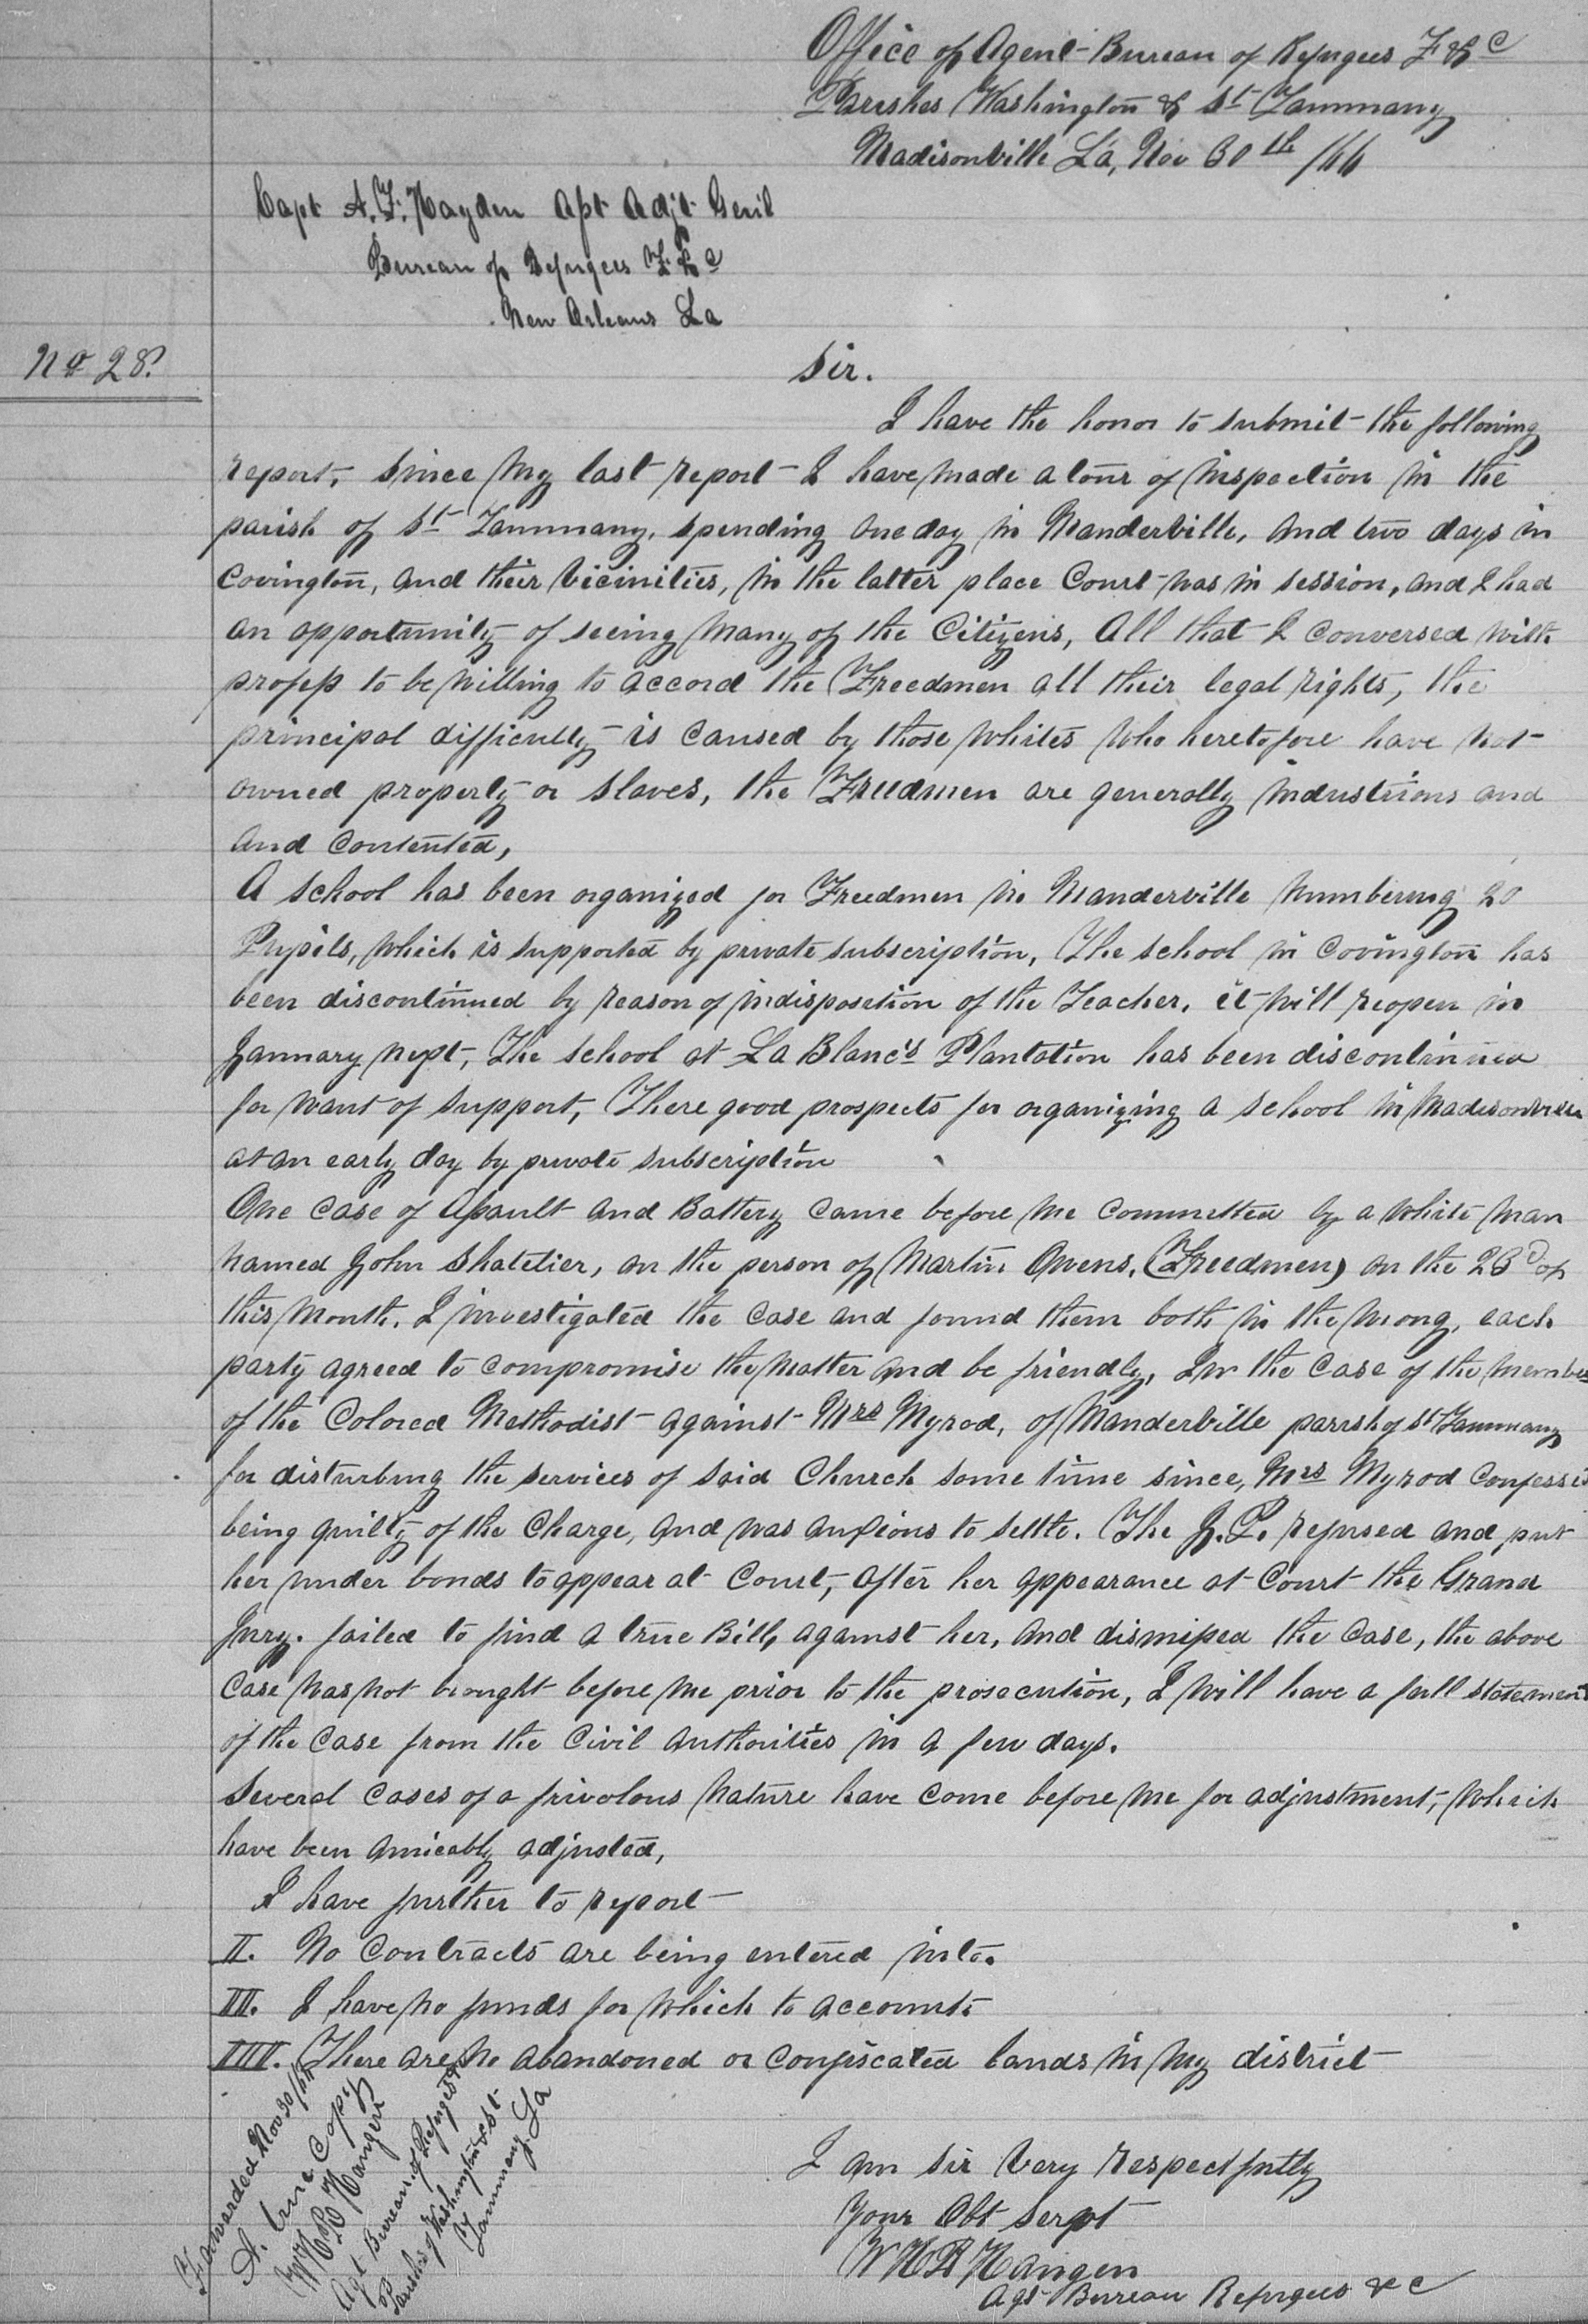 Office of Agent Bureau of Refugees F & c
Parishes Washington & St Tammany
Madisonville La, Nov 30th /66
Capt A. F. Hayden Asst Adjt Genl
Bureau of Refugees F. & c
New Orleans La
No 28.
Sir.
I have the honor to submit the following
report, since my last report I have made a tour of inspection in the
parish of St Tammany, spending one day in Manderville, and two days in
Covington, and their vicinities, in the latter place Court was in session, and I had
an opportunity of seeing many of the Citizens, All that I conversed with
profess to be willing to accord the Freedmen all their legal rights, the
principal difficulty is caused by those whites who heretofore have not
owned property or slaves, the Freedmen are generally industrious and
and contented,
A school has been organized for Freedmen in Manderville numbering 20
Pupils, which is supported by private subscription, The school in Covington has
been discontinued by reason of indisposition of the Teacher, it will reopen in
January next, The school at La Blanc's Plantation has been discontinued
for want of support, There good prospects for organizing a school in Madisonville
at an early day by private subscription
One case of Assault and Battery came before me committed by a white man
named John Shatetier, on the person of Martin Owens, (Freedmen) on the 23d of
this month. I investigated the case and found them both in the wrong, each
party agreed to compromise the matter and be friendly, In the case of the members
of the Colored Methodist against Mrs Myrod, of Manderville parish of St Tammany
for disturbing the services of said Church some time since, Mrs Myrod Confessed
being guilty of the charge, and was anxious to settle. The J. P. refused and put
her under bonds to appear at Court, after her appearance at Court the Grand
Jury. failed to find a true Bill, against her, and dismissed the case, the above
case was not brought before me prior to the prosecution, I will have a full statement
of the case from the Civil Authorities in a few days.
Several cases of a frivolous nature have come before me for adjustment, which
have been amicably adjusted,
I have further to report
II. No Contracts are being entered into.
III. I have no funds for which to account.
IIII. There are no abandoned or confiscated lands in my district
I am Sir Very Respectfully
Your Obt Servt
W H R Hangen
Agt Bureau Refugees & c
Forwarded Nov 30/66
A. true Copy
W H R Hangen
Agt Bureau of Refugees &
Parishes of Washington & St
Tammany La